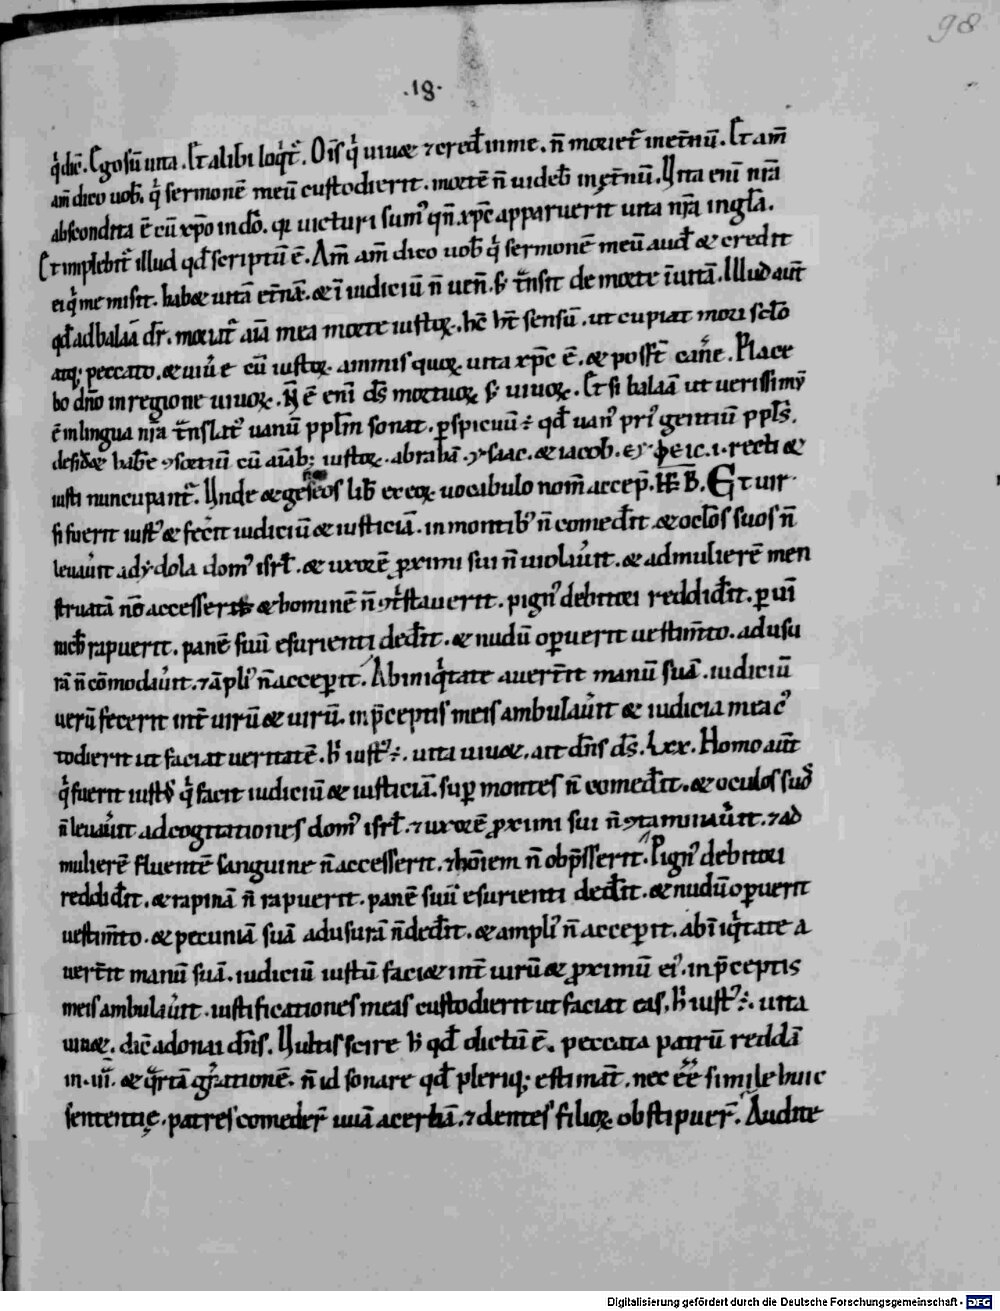 98
.18.
q̇ dic̄. Ego sū uita. Et alibi loq̇t᷑. Oīs q̇ uiuæ ⁊ cred̄ in me. n̄ moriet᷑ in et̄nū. Et am̄
am̄ dico uob̄. q̇ sermonē meū custodierit. mortē n̄ uideb̄ in ęt̄nū. Vita enī nr̄a
abscondita ē cū xp̄o in dō. q̇ uicturi sum᷒ qn̄ xp̄c apparuerit uita nr̄a in gl̄a.
Et implebit᷑ illud qd̄ scriptū ē. Am̄ am̄ dico uob̄ q̇ sermonē meū aud̄ & credit
ei q̇ me misit. habæ uitā et̄nā. & ī iudiciū n̄ uen̄. s; t̄nsit de morte ī uitā. Illud aut̄
qd̄ ad balaā dr̄. moriat᷑ aīa mea morte iustoꝝ. hc̄ ht̄ sensū. ut cupiat mori sclō
atq; peccato. & uiu᷑e cū iustoꝝ ammisquoꝝ uita xp̄c ē. & poss̄t can᷑e. Place
bo dn̄o in regione uiuoꝝ. N̄ ē enī ds̄ mortuoꝝ s; uiuoꝝ. Et si balaā ut uerissimȳ
ē in lingua nr̄a t̄nslat᷑ uanū ppl̄m sonat. ꝑspicuū ÷ qd̄ uan᷒ pr̄ gentiū ppl̄s.
desid᷑æ hab̄e ꝯsortiū cū aīab; iustoꝝ. abrahā. ysaac. & iacob. .i. recti &
iusti nuncupant᷑. Vnde & geneseos lib̄ ex eoꝝ uocabulo nom̄ accep̄. Et uir
si fuerit iust᷒ & fec̄it iudiciū & iusticiā. in montib᷒ n̄ comed̄it. & oclo̅s suos n̄
leuau᷑it ad ydola dom᷒ isrl̄. & uxorē ꝓximi sui n̄ uiolau᷑it. & ad mulierē men
struatā nō accesserit & hominē n̄ ꝯt᷑stauerit. pign᷒ debitori reddid̄it. ꝑ uī
nich̄ rapuerit. panē suū esurienti ded̄it. & nudū oꝑuerit uestim̄to. ad usu
rā n̄ cōmodau᷑it. ⁊ āpli᷒ n̄ acceꝑit. Ab iniq̇tate auert̄it manū suā. iudiciū
uerū fecerit int̄ uirū & uirū. in p̄ceptis meis ambulau᷑it & iudicia mea c᷒
todierit ut faciat ueritatē. h̄ iust᷒ ÷. uita uiuæ. ait dn̄s ds̄. Lxx. Homo aut̄
q̇ fuerit iust᷒ q̇ facit iudiciū & iusticiā. suꝑ montes n̄ comed̄it. & oculos suos
n̄ leuau᷑it ad cogitationes dom᷒ isrl̄. ⁊ uxorē ꝓximi sui n̄ ꝯtaminau᷑it. ⁊ ad
mulierē fluentē sanguine n̄ accesserit. ⁊ hoīem n̄ obp̄sserit. Pign᷒ debitori
reddid̄it. & rapinā n̄ rapuerit. panē suū esurienti ded̄it. & nudū oꝑuerit
uestim̄to. & pecuniā suā ad usurā n̄ ded̄it. & ampli᷒ n̄ acceꝑit. ab īiq̇tate a
uert̄it manū suā. iudiciū iustū faciæ int̄ uirū & ꝓximū ei᷒. in p̄ceptis
meis ambulau᷑it. iustificationes meas custodierit ut faciat eas. h̄ iust᷒ ÷. uita
uiuæ. dic̄ adonai dn̄s. Vultis scire h̄ qd̄ dictū ē. peccata patrū reddā
in .iii. & q̄rtā gn̄rationē. n̄ id sonare qd̄ pleriq; estimāt. nec ēē simile huic
sententię. patres comeder̄ uuā acerbā. ⁊ dentes filioꝝ obstipuer̄. Audite
Digitalisierung gefördert durch die Deutsche Forschungsgemeinschaft - DFG